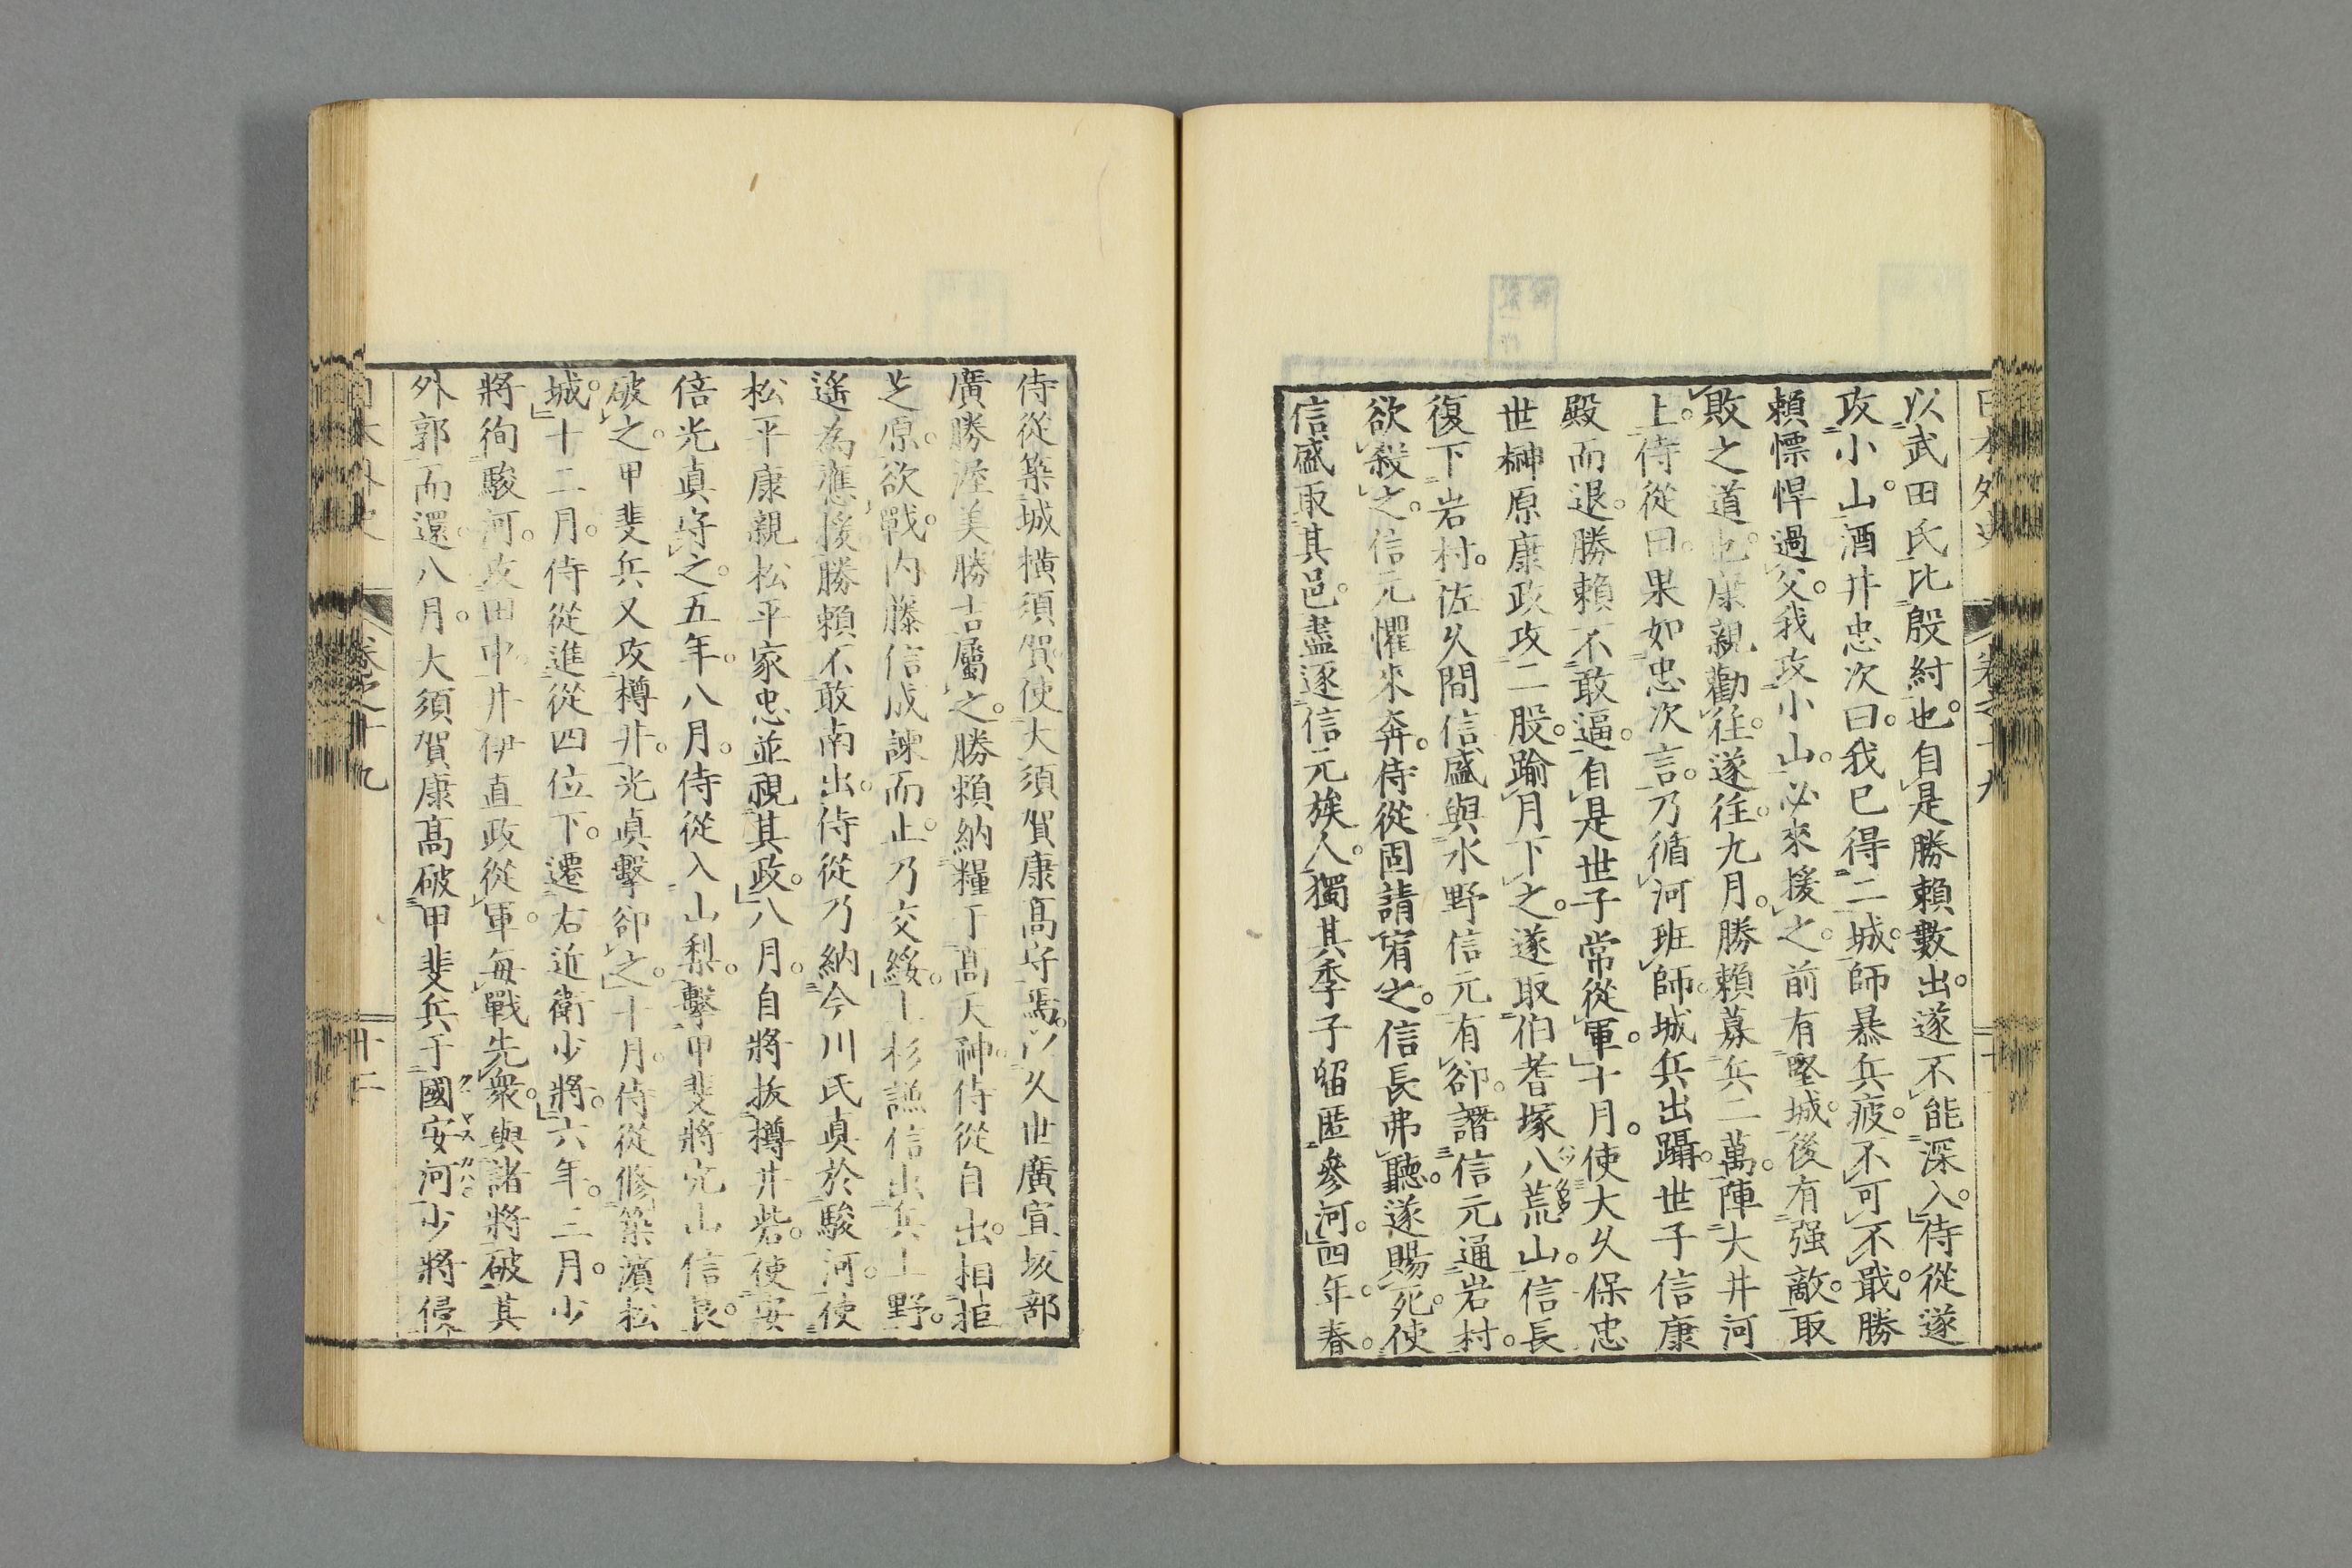 以武田氏比殷紂也。自是勝賴數出。遂不能深入。侍從遂
攻小山。酒井忠次曰。我已得二城。師暴兵疲。不可不戢。勝
賴慓悍過父。我攻小山。必來援之。前有堅城。後有强敵。取
敗之道也。康親勸往。遂往。九月。勝賴募兵二萬。陣大井河
上。侍從田。果如忠次言。乃循河班師。城兵出躡。世子信康
殿而退。勝賴不敢逼。自是世子常從軍。十月。使大久保忠
世榊原康政攻二股。踰月下之。遂取伯耆塚八荒山。信長
復下岩村。佐久間信盛與水野信元有卻。譖信元通岩村。
欲殺之。信元懼來奔。侍從固請宥之。信長弗聽。遂賜死。使
信盛取其邑。盡逐信元族人。獨其季子留匿參河。四年。春。
侍從築城橫須賀。使大須賀康高守焉。以久世廣宣坂部
廣勝渥美勝吉屬之。勝賴納糧于高天神。侍從自出。相拒
芝原。欲戰。內藤信成諫而止。乃交綏。上杉謙信出兵上野。
遙為應援。勝賴不敢南出。侍從乃納今川氏眞於駿河。使
松平康親松平家忠並視其政。八月。自將拔樽井砦。使安
倍光眞守之。五年。八月。侍從入山梨。擊甲斐將穴山信良。
破之。甲斐兵又攻樽井。光眞擊卻之。十月。侍從修築濱松
城。十二月。侍從進從四位下。遷右近衛少將。六年。三月。少
將徇駿河。攻田中。井伊直政從軍。每戰先衆。與諸將破其
外郭而還。八月。大須賀康高破甲斐兵于國安河。少將侵
日本外史 卷之十九 十二